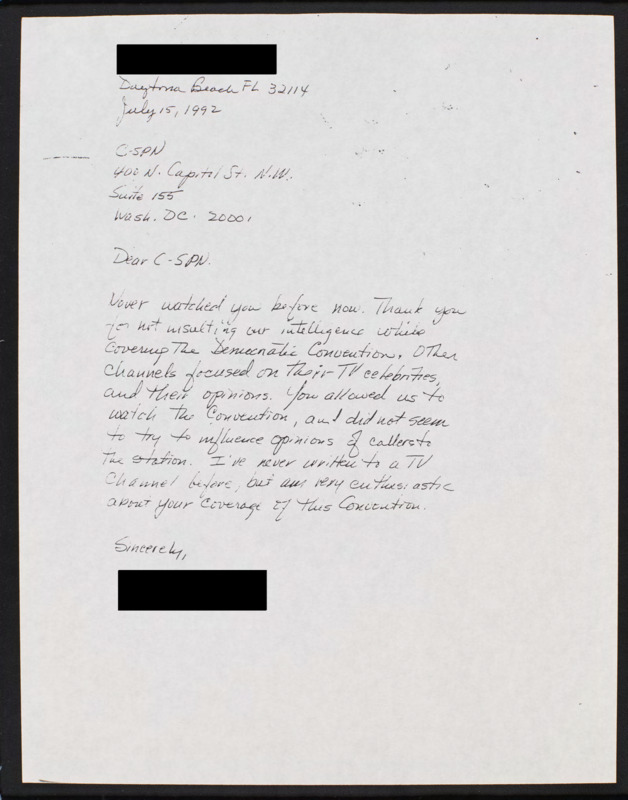 Daytona Beach FL 32114
July 15, 1992
C-SPN
400 N. Capitol St. N.W.
Suite 155
Wash. DC. 20001
Dear C-SPN.
Never watched you before now. Thank you
for not insulting our intelligence while
covering The Democratic Convention. Other
channels focused on their TV celebrities,
and their opinions. You allowed us to
watch the Convention, and did not seem
to try to influence opinions of callers to
the station. I've never written to a TV
Channel before, but am very enthusiastic
about your coverage of this Convention.
Sincerely,